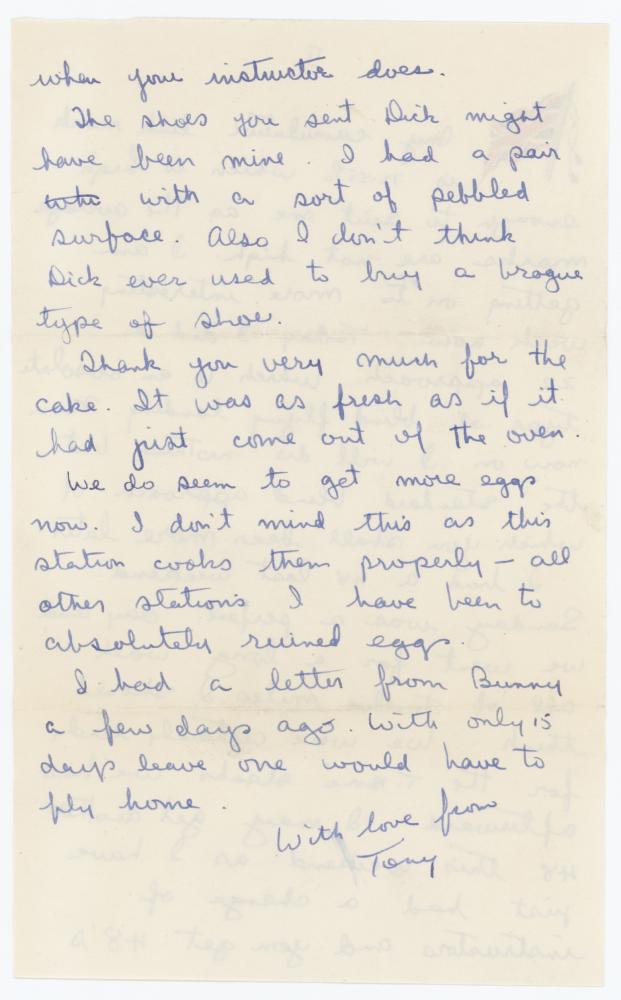 when your instructor does.
The shoes you sent Dick might
have been mine. I had a pair
with a sort of pebbled
surface. Also I don't think
Dick ever used to buy a brogue
type of shoe.
Thank you very much for the
cake. It was as fresh as if it
had just come out of the oven.
We do seem to get more eggs
now. I don't mind this as this
station cooks them properly – all
other stations I have been to
absolutely ruined eggs.
I had a letter from Bunny
a few days ago. With only 15
days leave one would have to
fly home.
With love from
Tony